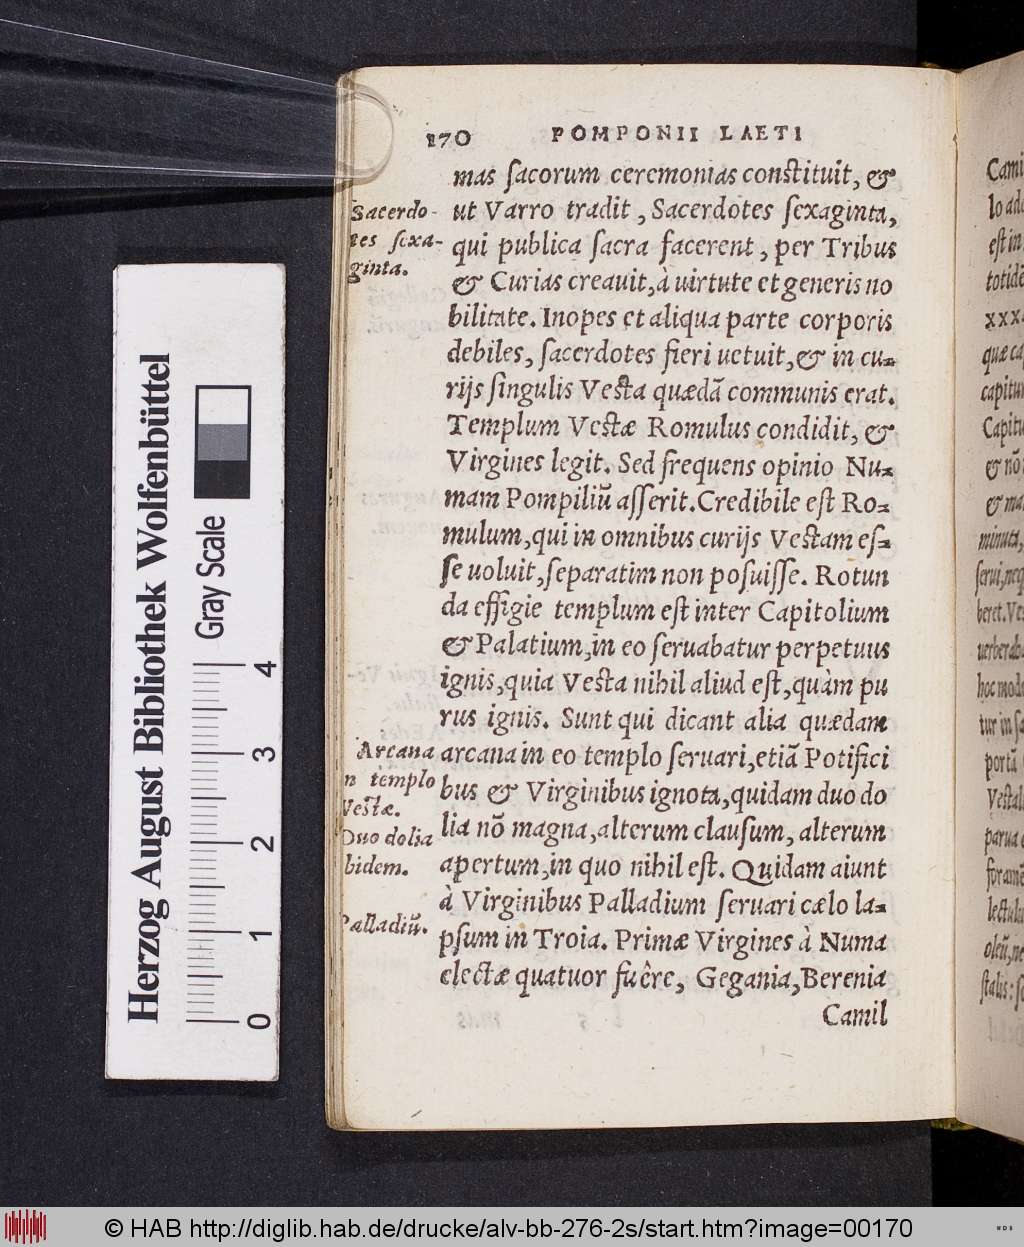 170 POMPONII LAETI
mas sacorum ceremonias constituit, &
ut Varro tradit, Sacerdotes sexaginta,
qui publica sacra facerent, per Tribus
& Curias creauit, à uirtute et generis no
bilitate. Inopes et aliqua parte corporis
debiles, sacerdotes fieri uetuit, & in cu-
rijs singulis Vesta quædã communis erat.
Templum Vestæ Romulus condidit, &
Virgines legit. Sed frequens opinio Nu-
mam Pompiliũ asserit. Credibile est Ro-
mulum, qui in omnibus curijs Vestam es-
se uoluit, separatim non posuisse. Rotun
da effigie templum est inter Capitolium
& Palatium, in eo seruabatur perpetuus
ignis, quia Vesta nihil aliud est, quàm pu
rus ignis. Sunt qui dicant alia quædam
arcana in eo templo seruari, etiã Potifici
bus & Virginibus ignota, quidam duo do
lia nõ magna, alterum clausum, alterum
apertum, in quo nihil est. Quidam aiunt
à Virginibus Palladium seruari cælo la-
psum in Troia. Primæ Virgines à Numa
electæ quatuor fuêre, Gegania, Berenia
Camil
Sacerdo-
tes sexa-
ginta.
Arcana
n templo
Vestæ.
Duo dolia
bidem.
Palladiũ.
Cami
lo ado
est in
totidẽ
xxx
quæ ca
capitu
Capitu
& nõ
& ma
minuta,
serui, neq
beret. Ve
uerberab
hoc modo
tur in sa
portã
Vestal
parua
foramẽ
lectulu
oleũ, ne
stalis: s
Herzog August Bibliothek Wolfenbüttel
Gray Scale
0 1 2 3 4
© HAB http://diglib.hab.de/drucke/alv-bb-276-2s/start.htm?image=00170